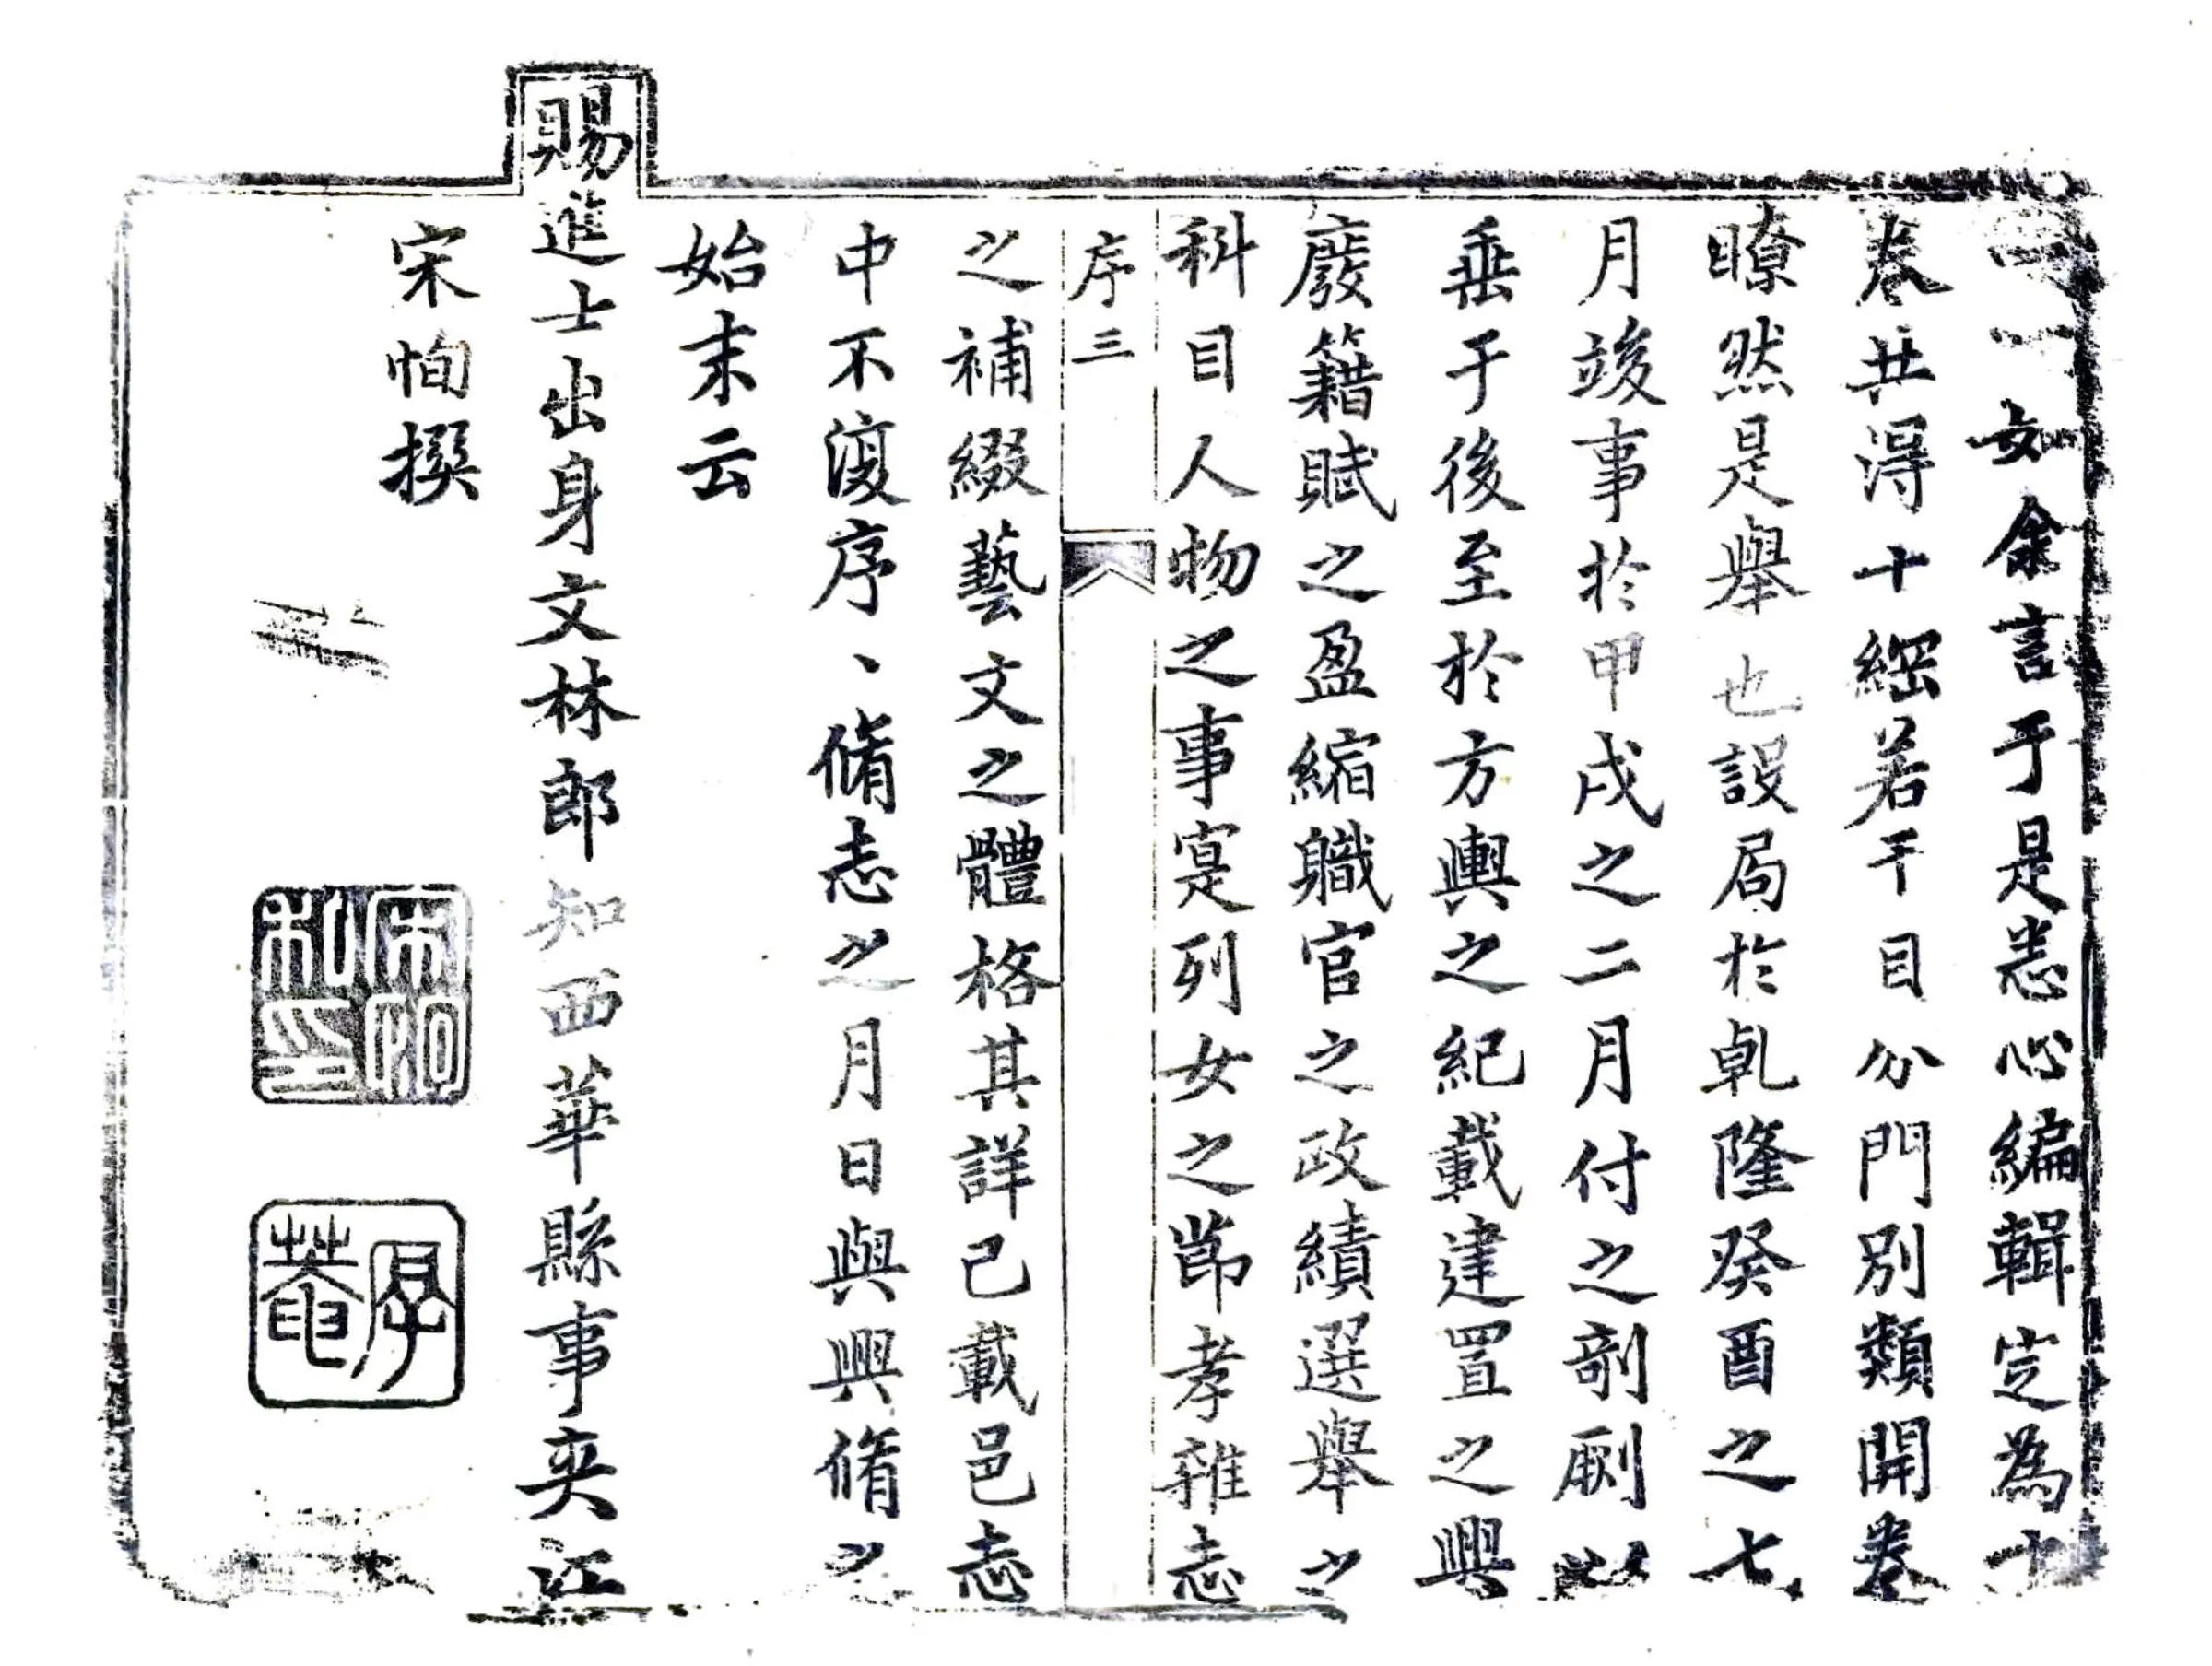 一一如余言于是悉心編輯定為十
卷共得十綱若干目分門別類開卷
瞭然是舉也設局於乹隆癸酉之七
月竣事於甲戌之二月付之剞劂以
垂于後至於方輿之紀載建置之興
廢籍賦之盈縮職官之政績選舉之
科目人物之事寔列女之莭孝雜志
序三
之補綴藝文之體格其詳已載邑志
中不復序、脩志之月日與興脩之
始末云
賜進士出身文林郎知西華縣事夾江
宋恂撰
宋恂私印
厚菴